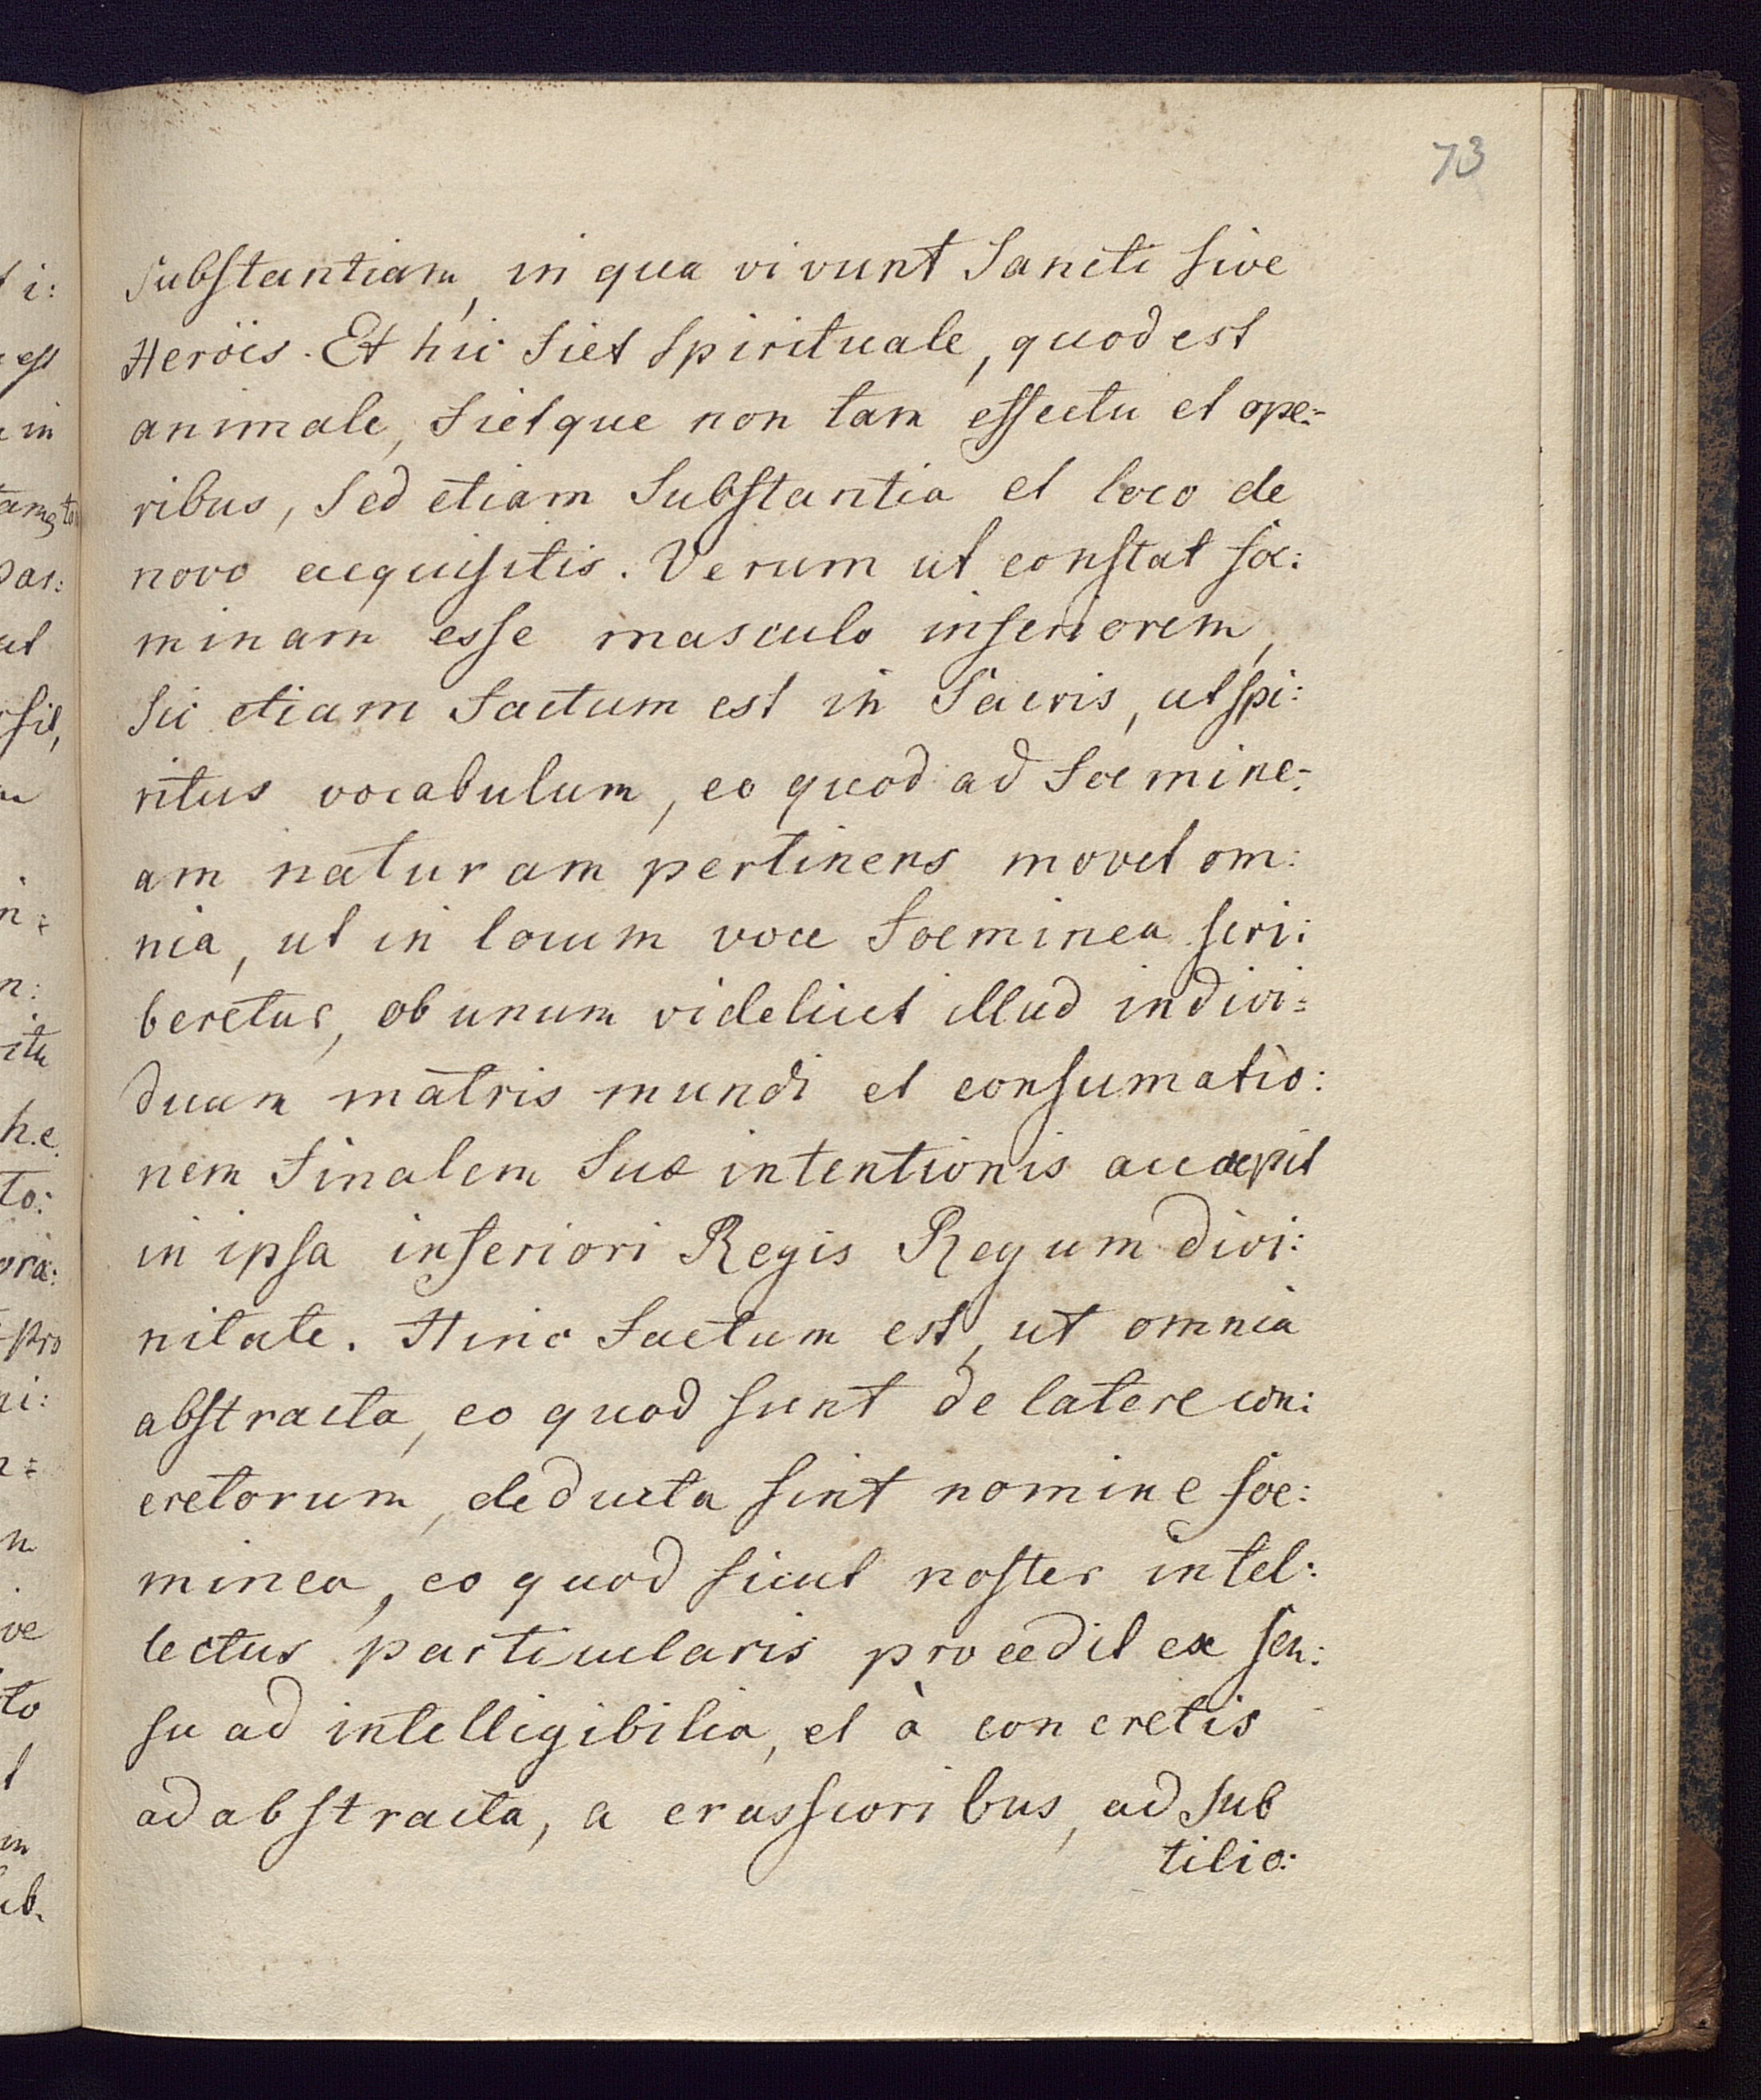 73
Substantiam, in qua vivunt Sancti sive
Heröis. Et hic fiet spirituale, quod est
animale, fietque non tam effectu et ope-
ribus, sed etiam Substantia et loco de
novo acquisitis. Verum ut constat foe:
minam esse masculo inferiorem,
sic etiam factum est in Sacris, ut spi:
ritus vocabulum, eo quod ad foemine-
am naturam pertinens movet om:
nia, ut in locum voce foeminea scri:
beretur, ob unum videlicet illud indivi-
duam matris mundi et consumatio:
nem finalem suæ intentionis accæpit
in ipsa inferiori Regis Regum divi:
nitate. Hinc factum est, ut omnia
abstracta, eo quod sunt de latere con:
cretorum, deducta sint nomine foe:
mineo, eo quod sicut noster intel:
lectus particularis procedit ex sen:
su ad intelligibilia, et à concretis
ad abstracta, a crassioribus, ad sub
tilio: